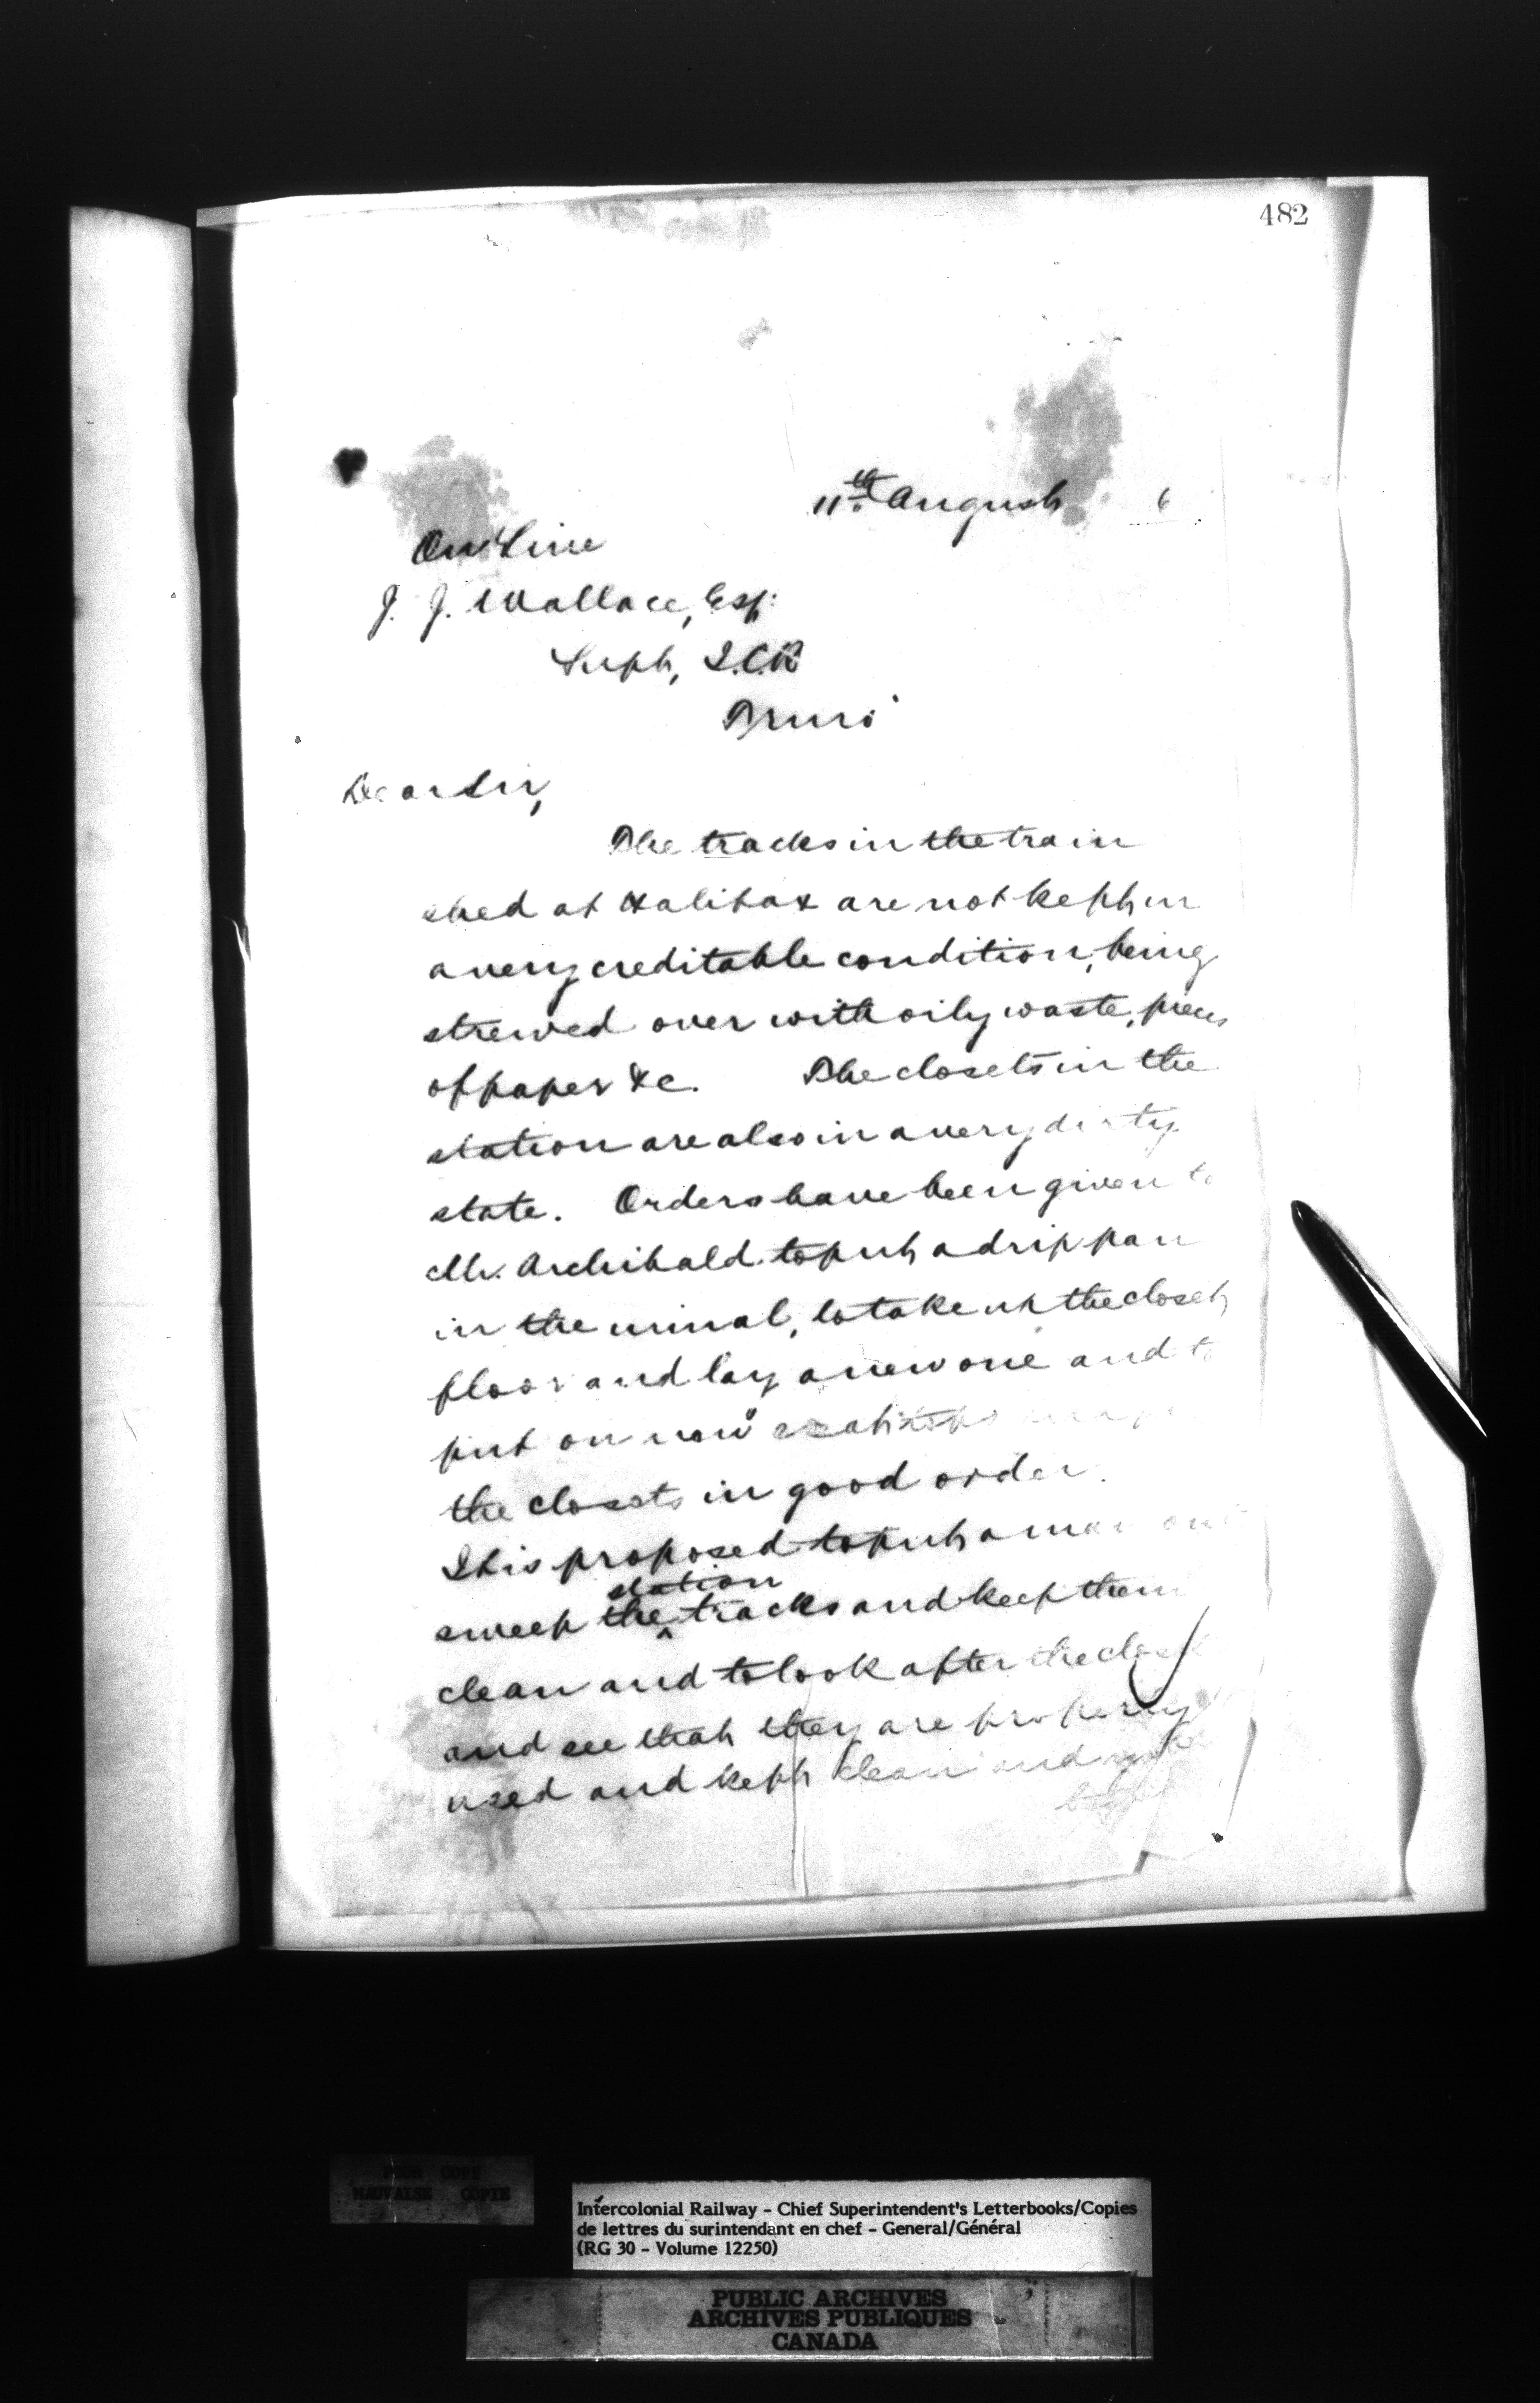 482
11th August 6
On Line
J. J. Wallace, Esq:
Supt, I.C.R
Truro
Dear Sir,
The tracks in the train
shed at Halifax are not kept in
a very creditable condition, being
strewed over with oily waste, pieces
of paper &c. The closets in the
station are also in a very dirty
state. Orders have been given to
Mr. Archibald to put a drip pan
in the urinal, to take up the closet
floor and lay a new one and to
put on new
the closets in good order.
It is proposed to put a man on
sweep the station tracks and keep them
clean and to look after the closet
and see that they are properly
used and kept clean and
POOR COPY
MAUVAISE COPIE
Intercolonial Railway - Chief Superintendent's Letterbooks/Copies
de lettres du surintendant en chef - General/Général
(RG 30 - Volume 12250)
PUBLIC ARCHIVES
ARCHIVES PUBLIQUES
CANADA